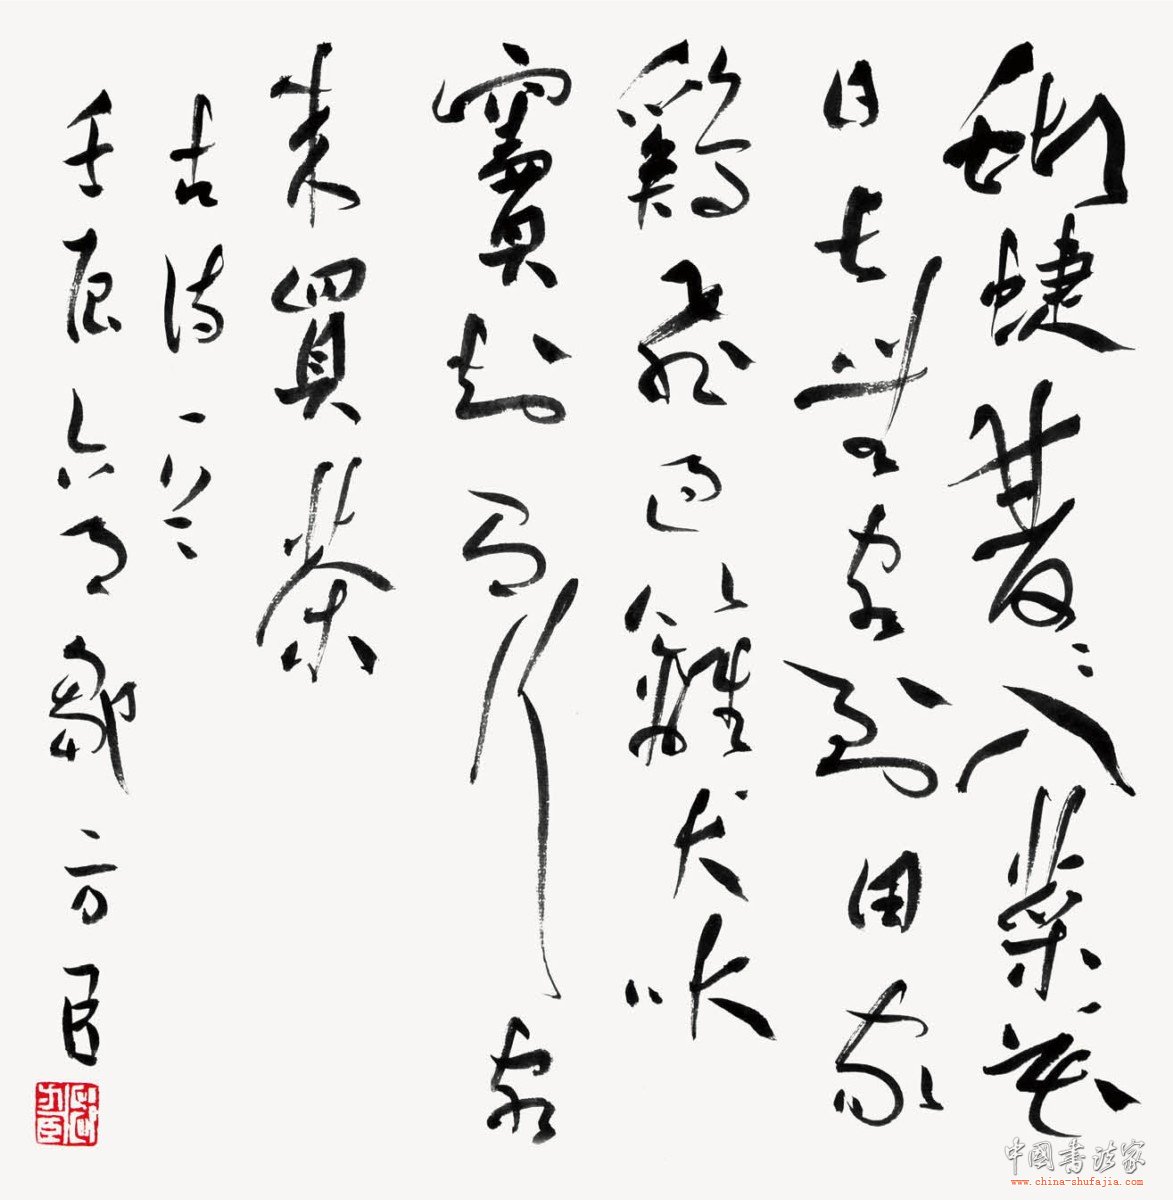 胡蜨雙〻入菜花
日長無客到田家
鷄飛過籬犬吠
竇知有行客
來買茶
古詩一首
壬辰六月方臣
中国书法家
www.china-shufajia.com